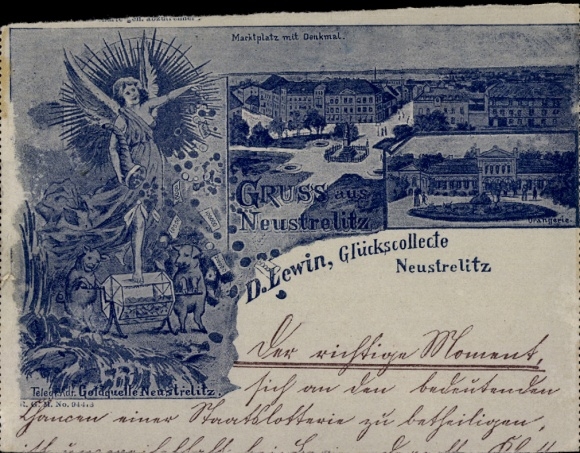 Marktplatz mit Denkmal.
GRUSS aus
Neustrelitz
Orangerie.
D. Lewin, Glückscollecte
Neustrelitz
Telegr. Adr. Goldquelle Neustrelitz.
G. M. No. 94443
Der richtige Moment,
sich an den bedeutenden
Chancen einer Staatslotterie zu betheiligen,
ist unzweifelhaft bei